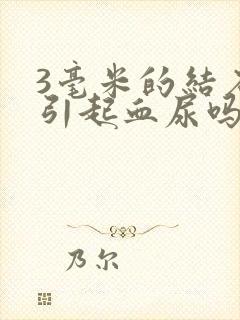 3毫米的結
引起血尿吗
乃尔